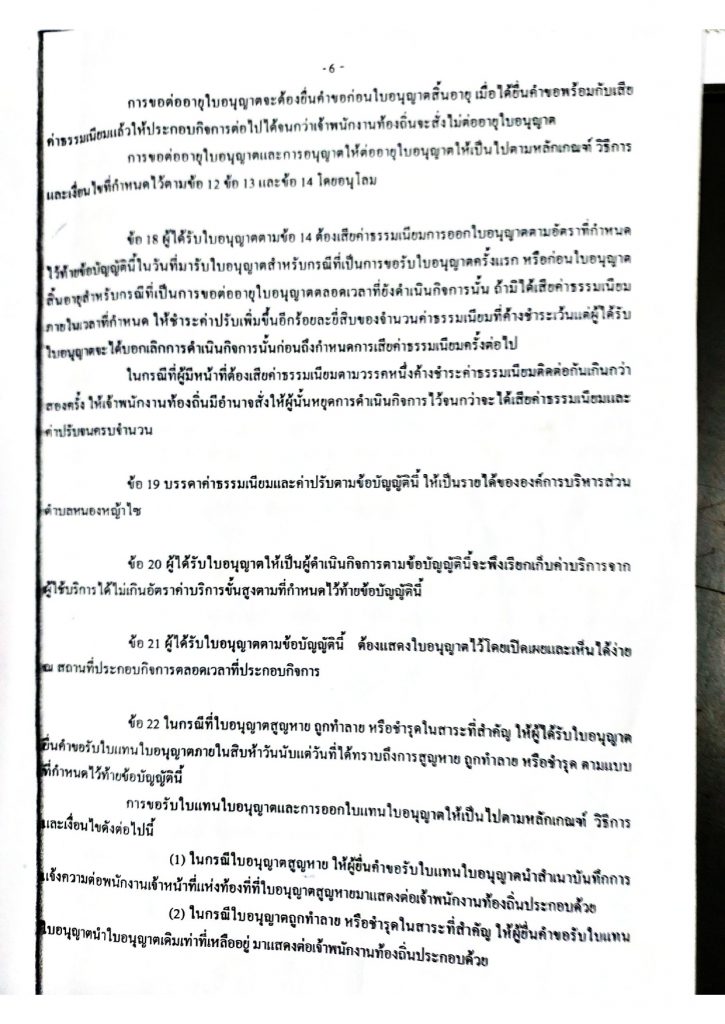 -6-
การขอต่ออายุใบอนุญาตจะต้องยื่นคำขอก่อนใบอนุญาตสิ้นอายุ เมื่อได้ยื่นคำขอพร้อมกับเสีย
ค่าธรรมเนียมแล้วให้ประกอบกิจการต่อไปได้จนกว่าเจ้าพนักงานท้องถิ่นจะสั่งไม่ต่ออายุใบอนุญาต
การขอต่ออายุใบอนุญาตและการอนุญาตให้ต่ออายุใบอนุญาตให้เป็นไปตามหลักเกณฑ์ วิธีการ
และเงื่อนไขที่กำหนดไว้ตามข้อ 12 ข้อ 13 และข้อ 14 โดยอนุโลม
ข้อ 18 ผู้ได้รับใบอนุญาตตามข้อ 14 ต้องเสียค่าธรรมเนียมการออกใบอนุญาตตามอัตราที่กำหนด
ไว้ท้ายข้อบัญญัตินี้ในวันที่มารับใบอนุญาตสำหรับกรณีที่เป็นการขอรับใบอนุญาตครั้งแรก หรือก่อนใบอนุญาต
สิ้นอายุสำหรับกรณีที่เป็นการขอต่ออายุใบอนุญาตตลอดเวลาที่ยังดำเนินกิจการนั้น ถ้ามิได้เสียค่าธรรมเนียม
ภายในเวลาที่กำหนด ให้ชำระค่าปรับเพิ่มขึ้นอีกร้อยละยี่สิบของจำนวนค่าธรรมเนียมที่ค้างชำระเว้นแต่ผู้ได้รับ
ใบอนุญาตจะได้บอกเลิกการดำเนินกิจการนั้นก่อนถึงกำหนดการเสียค่าธรรมเนียมครั้งต่อไป
ในกรณีที่ผู้มีหน้าที่ต้องเสียค่าธรรมเนียมตามวรรคหนึ่งค้างชำระค่าธรรมเนียมติดต่อกันเกินกว่า
สองครั้ง ให้เจ้าพนักงานท้องถิ่นมีอำนาจสั่งให้ผู้นั้นหยุดการดำเนินกิจการไว้จนกว่าจะได้เสียค่าธรรมเนียมและ
ค่าปรับจนครบจำนวน
ข้อ 19 บรรดาค่าธรรมเนียมและค่าปรับตามข้อบัญญัตินี้ ให้เป็นรายได้ขององค์การบริหารส่วน
ตำบลหนองหญ้าไซ
ข้อ 20 ผู้ได้รับใบอนุญาตให้เป็นผู้ดำเนินกิจการตามข้อบัญญัตินี้จะพึงเรียกเก็บค่าบริการจาก
ผู้ใช้บริการได้ไม่เกินอัตราค่าบริการขั้นสูงตามที่กำหนดไว้ท้ายข้อบัญญัตินี้
ข้อ 21 ผู้ได้รับใบอนุญาตตามข้อบัญญัตินี้ ต้องแสดงใบอนุญาตไว้โดยเปิดเผยและเห็นได้ง่าย
ณ สถานที่ประกอบกิจการตลอดเวลาที่ประกอบกิจการ
ข้อ 22 ในกรณีที่ใบอนุญาตสูญหาย ถูกทำลาย หรือชำรุดในสาระที่สำคัญ ให้ผู้ได้รับใบอนุญาต
ยื่นคำขอรับใบแทนใบอนุญาตภายในสิบห้าวันนับแต่วันที่ได้ทราบถึงการสูญหาย ถูกทำลาย หรือชำรุด ตามแบบ
ที่กำหนดไว้ท้ายข้อบัญญัตินี้
การขอรับใบแทนใบอนุญาตและการออกใบแทนใบอนุญาตให้เป็นไปตามหลักเกณฑ์ วิธีการ
และเงื่อนไขดังต่อไปนี้
(1) ในกรณีใบอนุญาตสูญหาย ให้ผู้ยื่นคำขอรับใบแทนใบอนุญาตนำสำเนาบันทึกการ
แจ้งความต่อพนักงานเจ้าหน้าที่แห่งท้องที่ที่ใบอนุญาตสูญหายมาแสดงต่อเจ้าพนักงานท้องถิ่นประกอบด้วย
(2) ในกรณีใบอนุญาตถูกทำลาย หรือชำรุดในสาระที่สำคัญ ให้ผู้ยื่นคำขอรับใบแทน
ใบอนุญาตนำใบอนุญาตเดิมเท่าที่เหลืออยู่ มาแสดงต่อเจ้าพนักงานท้องถิ่นประกอบด้วย